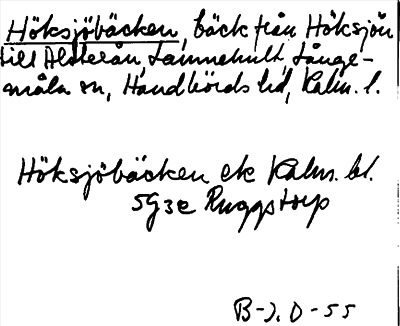 Höksjöbäcken, bäck från Höksjön
till Alsterån, Lämnehult Långe-
måla sn, Handbörds hd, Kalm. l.
Höksjöbäcken ek Kalm. bl.
5G3e Ruggstorp
B-J. D-55